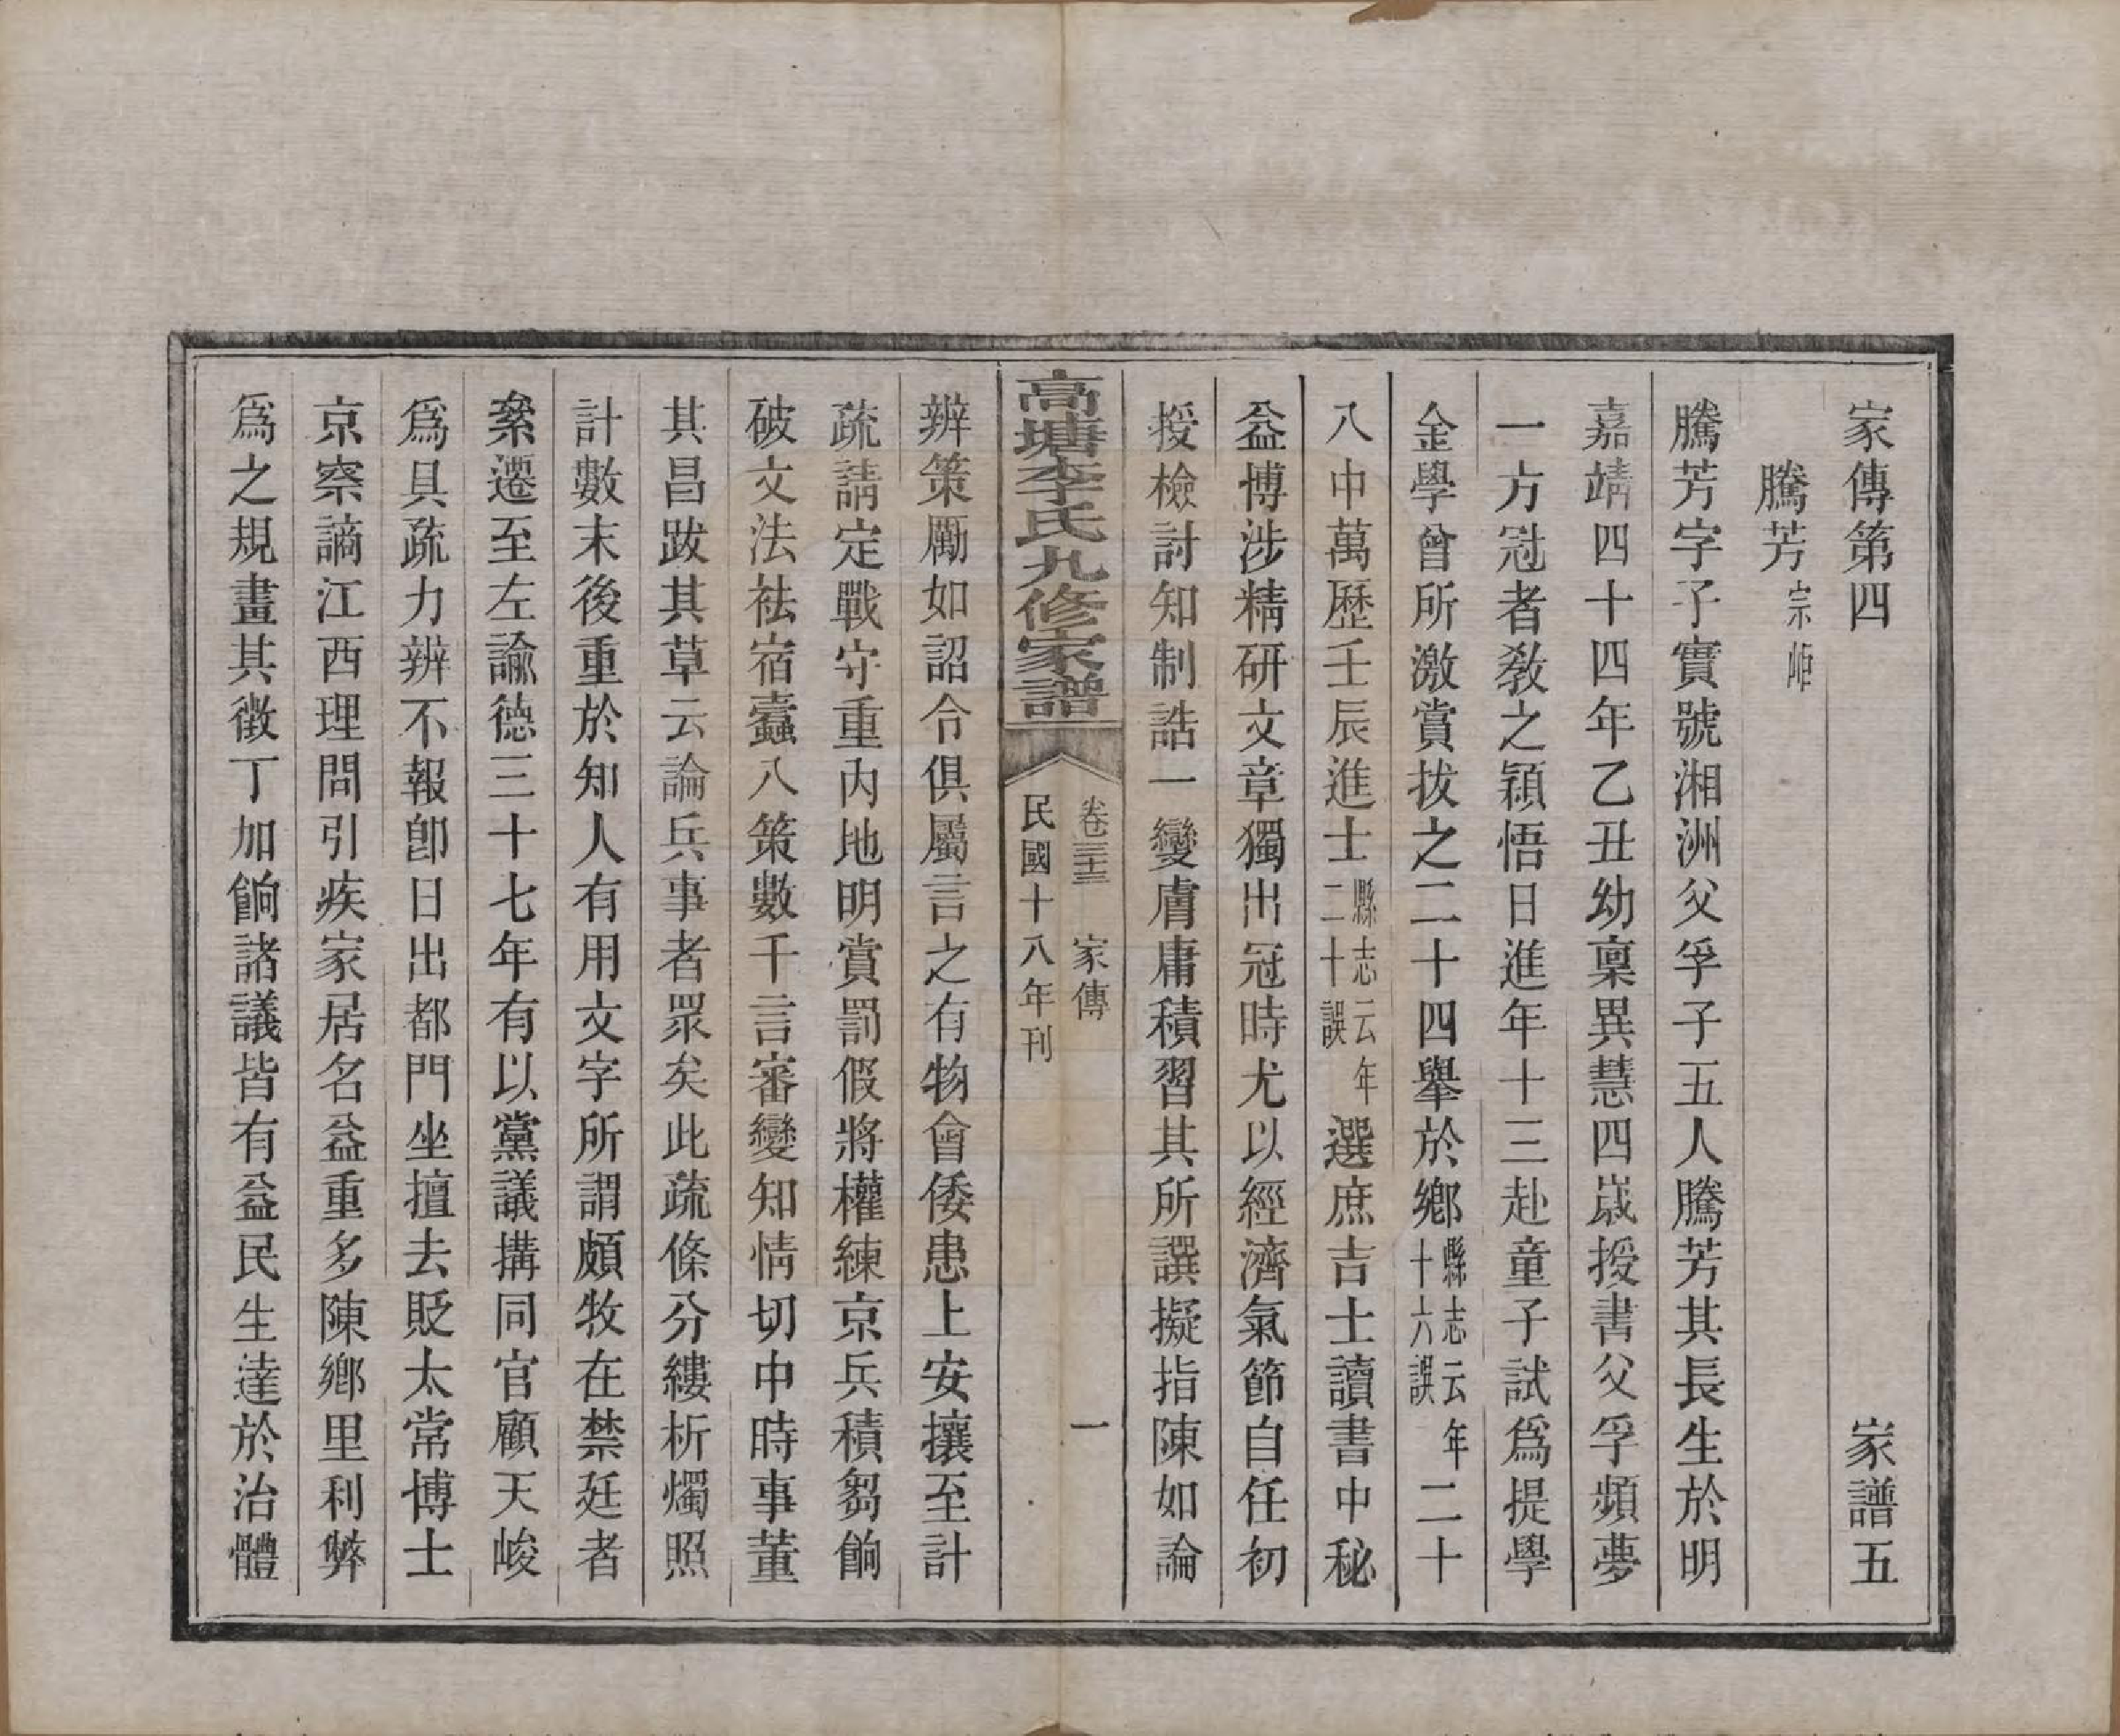 家傳第四　家譜五
騰芳宗岠
騰芳字子實號湘洲父孚子五人騰芳其長生於明
嘉靖四十四年乙丑幼稟異慧四嵗授書父孚頻夢
一方冠者教之穎悟日進年十三赴童子試爲提學
金學曾所激賞拔之二十四舉於鄉縣志云年十六誤二十
八中萬歷壬辰進士縣志云年二十誤選庶吉士讀書中秘
益博涉精研文章獨出冠時尤以經濟氣節自任初
授檢討知制誥一變膚庸積習其所譔擬指陳如論
高塘李氏九修家譜
卷三十三　家傳　一
民國十八年刊
辨策勵如詔令俱屬言之有物會倭患上安攘至計
疏請定戰守重內地明賞罰假將權練京兵積芻餉
破文法祛宿蠹八策數千言審變知情切中時事董
其昌跋其草云論兵事者眾矣此疏條分縷析燭照
計數末後重於知人有用文字所謂頗牧在禁廷者
絫遷至左諭德三十七年有以黨議搆同官顧天峻
爲具疏力辨不報卽日出都門坐擅去貶太常博士
京察謫江西理問引疾家居名益重多陳鄉里利弊
爲之規畫其徵丁加餉諸議皆有益民生達於治體